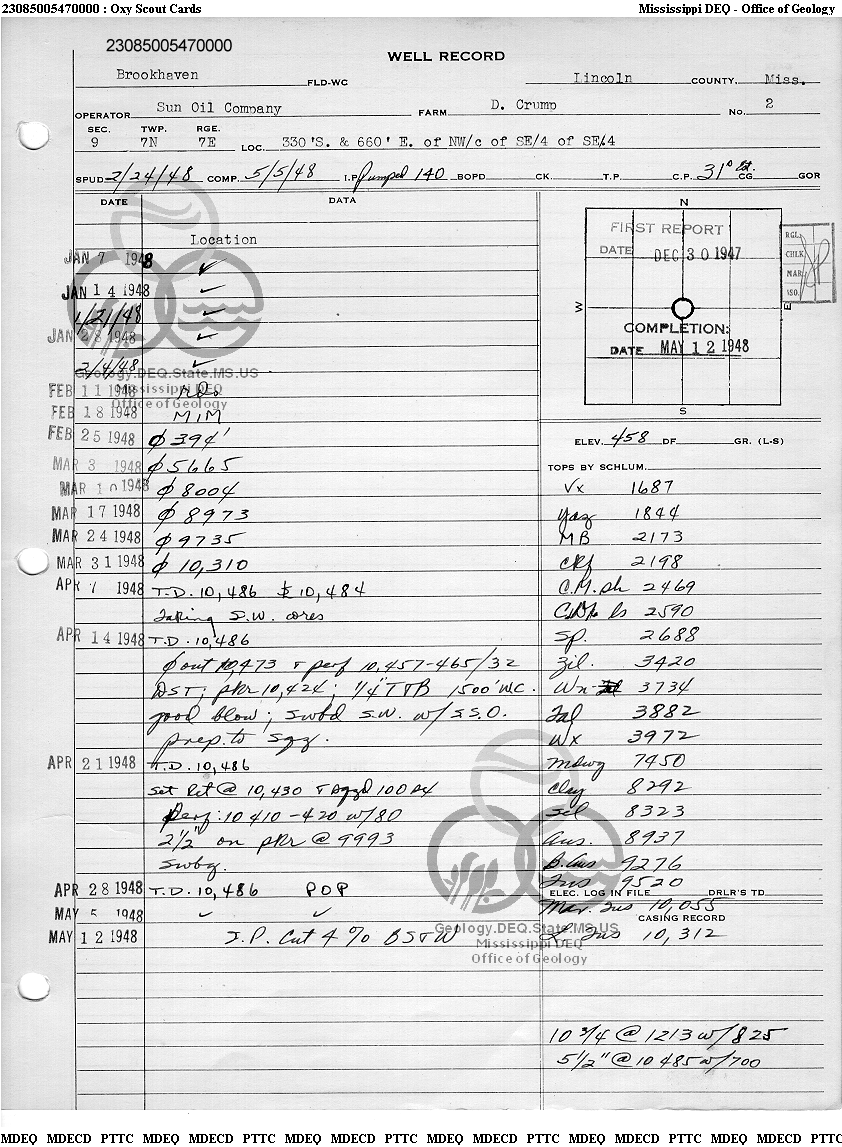 23085005470000 : Oxy Scout Cards Mississippi DEQ - Office of Geology
23085005470000
WELL RECORD
Brookhaven FLD-WC Lincoln COUNTY, Miss.
OPERATOR Sun Oil Company FARM D. Crump No. 2
SEC. TWP. RGE.
9 7N 7E LOC. 330'S. & 660' E. of NW/c of SE/4 of SE/4
SPUD 2/24/48 COMP. 5/5/48 I.P. Pumped 140 BOPD CK. T.P. C.P. 31° CG GOR
DATE DATA
Location
JAN 7 1948 ✓
JAN 14 1948 ✓
1/21/48 ✓
JAN 28 1948 ✓
2/4/48 ✓
FEB 11 1948
FEB 18 1948 MIM
FEB 25 1948 ϕ 394'
MAR 3 1948 ϕ 5665
MAR 10 1948 ϕ 8004
MAR 17 1948 ϕ 8973
MAR 24 1948 ϕ 9735
MAR 31 1948 ϕ 10,310
APR 7 1948 T.D. 10,486 10,484
Taking S.W. cores
APR 14 1948 T.D. 10,486
ϕ out 10,473 & perf 10,457-465/32
DST; pkr 10,424; 1/4" T&B 1500' WC.
good blow; swbd S.W. w/S.S.O.
prep. to sqz.
APR 21 1948 T.D. 10,486
Set Ret @ 10,430 & sqzd 100 sx
Perf: 10 410-420 w/80
2 1/2" on pkr @ 9993
Swbg.
APR 28 1948 T.D. 10,486 POP
MAY 5 1948 ✓ ✓
MAY 12 1948 I.P. Cut 4 % BS&W
N
W
E
S
FIRST REPORT
DATE DEC 30 1947
COMPLETION:
DATE MAY 12 1948
RGL.
CHLK
MAR.
ISO.
ELEV. 458 DF GR. (L-S)
TOPS BY SCHLUM.
Vx 1687
Yaz 1844
MB 2173
Ckf 2198
C.M. sh 2469
C.M. ls 2590
Sp. 2688
Zil. 3420
Wn 3734
Tal 3882
Wx 3972
Mdwy 7450
Clay 8292
Sel 8323
Aus. 8937
B. Aus 9276
Tus 9520
ELEC. LOG IN FILE DRLR'S TD
Mar. Tus 10,055
CASING RECORD
L Tus 10,312
10 3/4 @ 1213 w/825
5 1/2" @ 10 485 w/700
Geology.DEQ.State.MS.US
Mississippi DEQ
Office of Geology
Geology.DEQ.State.MS.US
Mississippi DEQ
Office of Geology
MDEQ MDECD PTTC MDEQ MDECD PTTC MDEQ MDECD PTTC MDEQ MDECD PTTC MDEQ MDECD PTTC MDEQ MDECD PTTC